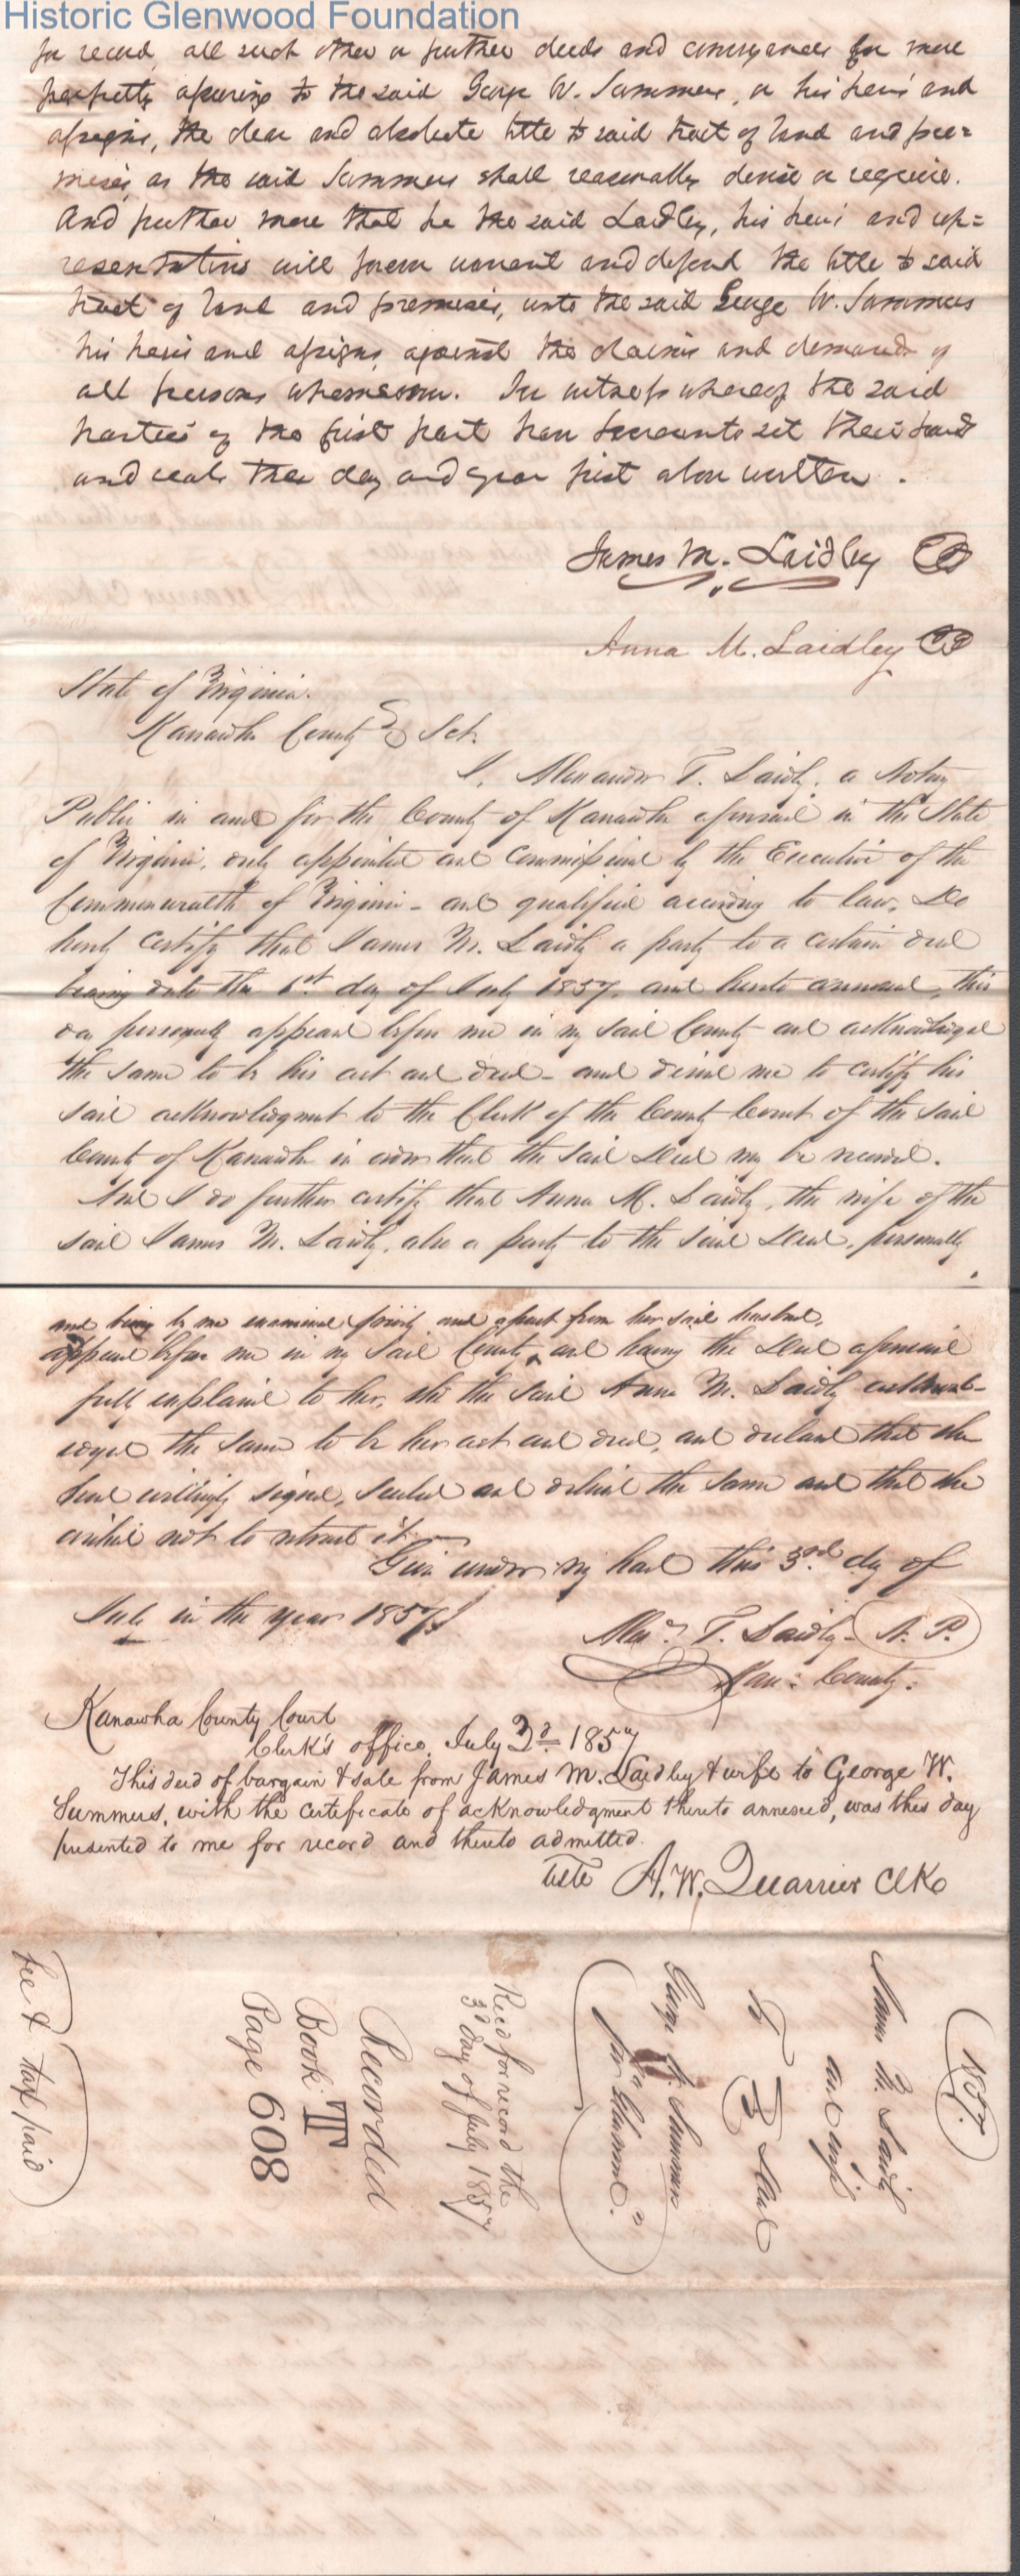 Historic Glenwood Foundation
for record, all such other or further deeds and conveyances for more
perfectly assuring to the said George W. Summers, or his heirs and
assigns, the clear and absolute title to said tract of land and pre=
mises, as the said Summers shall reasonably devise or require.
And further more that he the said Laidley, his heirs and rep=
resentatives will forever warrant and defend the title to said
tract of land and premises, unto the said George W. Summers
his heirs and assigns, against the claims and demands of
all persons whomsoever. In witness whereof the said
parties of the first part have hereunto set their hands
and seals the day and year first above written.
James M. Laidley
Anna M. Laidley
State of Virginia.
Kanawha County Sct.
I, Alexander T. Laidley, a Notary
Public in and for the County of Kanawha aforesaid in the State
of Virginia, duly appointed and commissioned by the Executive of the
Commonwealth of Virginia - and qualified according to law, Do
hereby certify that James M. Laidley a party to a certain deed
bearing date the 1st day of July 1857, and hereto annexed, this
day personally appeared before me in my said County and acknowledged
the same to be his act and deed - and desired me to certify his
said acknowledgment to the Clerk of the County Court of the said
County of Kanawha in order that the said Deed may be recorded.
And I do further certify that Anna M. Laidley, the wife of the
said James M. Laidley, also a party to the said Deed, personally
and being by me examined privily and apart from her said husband,
appeared before me in my said County, and having the Deed aforesaid
fully explained to her, she the said Anna M. Laidley acknowl-
edged the same to be her act and deed, and declared that she
had willingly signed, sealed and delivered the same and that she
wished not to retract it.
Given under my hand this 3rd day of
July in the year 1857.
Alexr. T. Laidley - N. P.
Kan: County.
Kanawha County Court
Clerk's office, July 3d 1857
This deed of bargain & sale from James M. Laidley & wife to George W.
Summers, with the certificate of acknowledgment thereto annexed, was this day
presented to me for record and thereto admitted.
Teste A. W. Quarrier Clk
No 7.
James M. Laidley
and wife
To Deed
George W. Summers
for
Recd for record the
3d day of July 1857
Recorded
Book T
Page 608
fee & tax paid